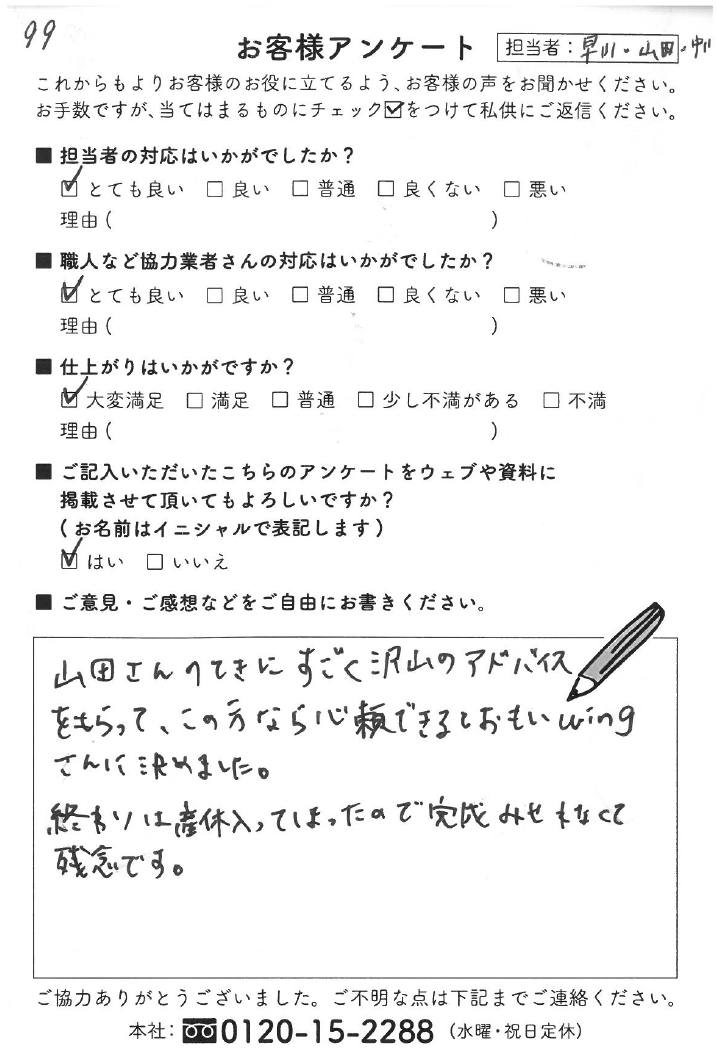 99
お客様アンケート
担当者：早川・山田・中川
これからもよりお客様のお役に立てるよう、お客様の声をお聞かせください。
お手数ですが、当てはまるものにチェック☑をつけて私供にご返信ください。
■ 担当者の対応はいかがでしたか？
☑ とても良い □ 良い □ 普通 □ 良くない □ 悪い
理由（ ）
■ 職人など協力業者さんの対応はいかがでしたか？
☑ とても良い □ 良い □ 普通 □ 良くない □ 悪い
理由（ ）
■ 仕上がりはいかがですか？
☑ 大変満足 □ 満足 □ 普通 □ 少し不満がある □ 不満
理由（ ）
■ ご記入いただいたこちらのアンケートをウェブや資料に
掲載させて頂いてもよろしいですか？
（お名前はイニシャルで表記します）
☑ はい □ いいえ
■ ご意見・ご感想などをご自由にお書きください。
山田さんのてきに すごく沢山のアドバイス
をもらって、この方なら心頼できるとおもいwing
さんに決めました。
終わりは産休入ってしまったので完成みせれなくて
残念です。
ご協力ありがとうございました。ご不明な点は下記までご連絡ください。
本社：0120-15-2288（水曜・祝日定休）